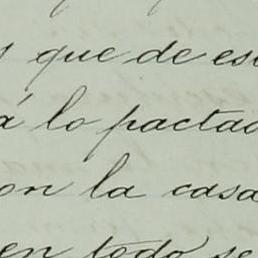 y que de es
á lo pactad
on la casa
en todo se